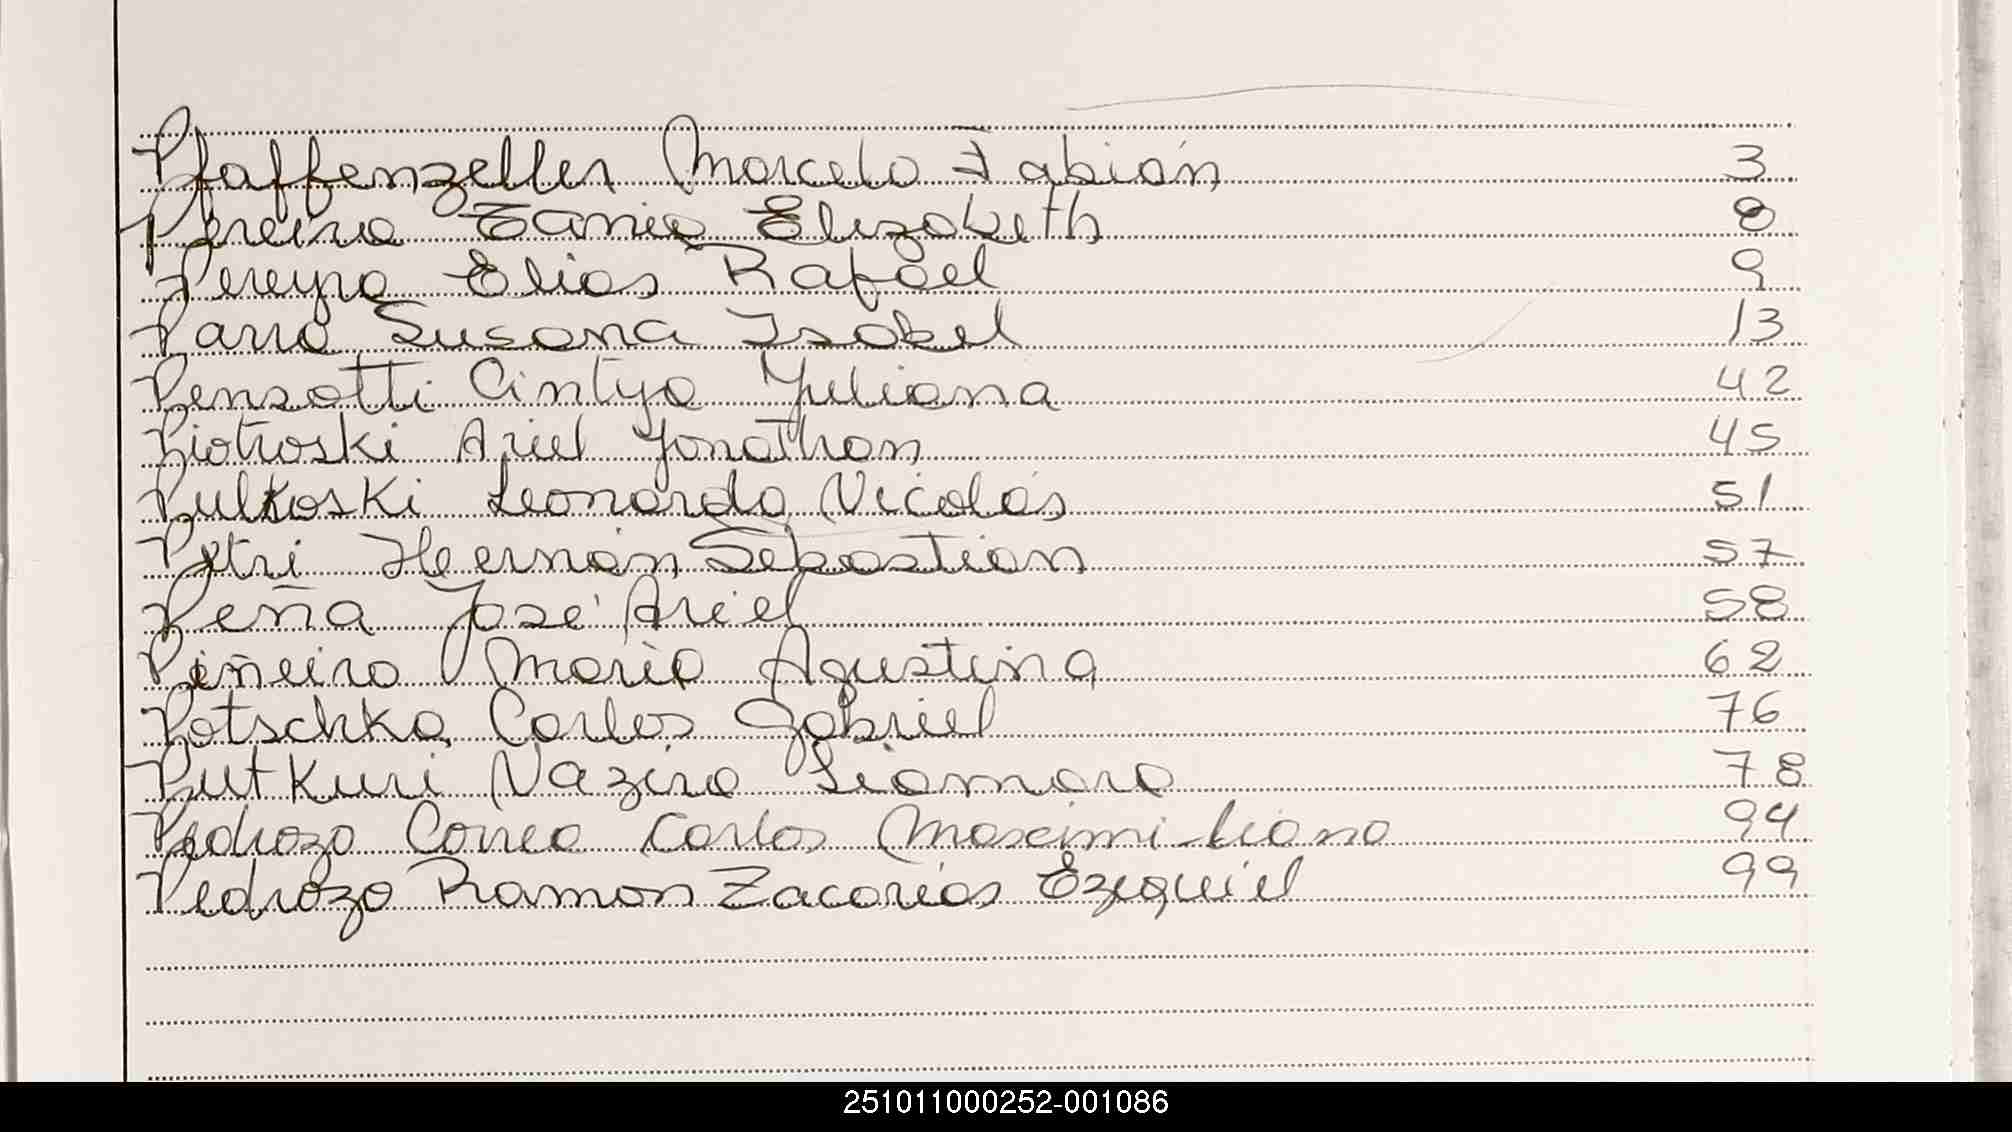 Pfaffenzeller Marcelo Fabián 3
Pereira Tania Elizabeth 8
Pereyra Elias Rafael 9
Parra Susana Isabel 13
Pensotti Cintya Yuliana 42
Piotroski Ariel Jonathan 45
Pulkoski Leonardo Nicolás 51
Petri Hernán Sebastian 57
Peña José Ariel 58
Piñeiro Maria Agustina 62
Potschka Carlos Gabriel 76
Putkuri Nazira Siomara 78
Pedrozo Correa Carlos Maximiliano 94
Pedrozo Ramon Zacarías Ezequiel 99
251011000252-001086